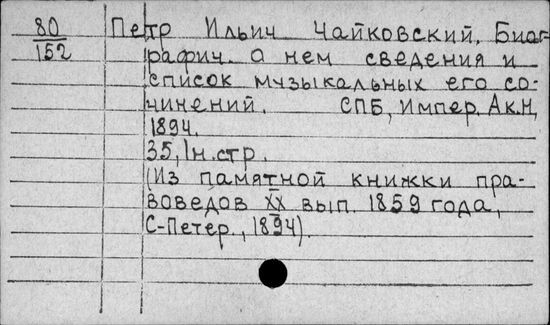 80 Петр Ильич Чайковский. Биог-
152 рафич. о нем сведения и
список музыкальных его со-
чинений. СПБ, Импер. Ак.Н,
1894.
35, 1н.стр.
(Из памятной книжки пра-
воведов XX вып. 1859 года,
С-Петер., 1894).